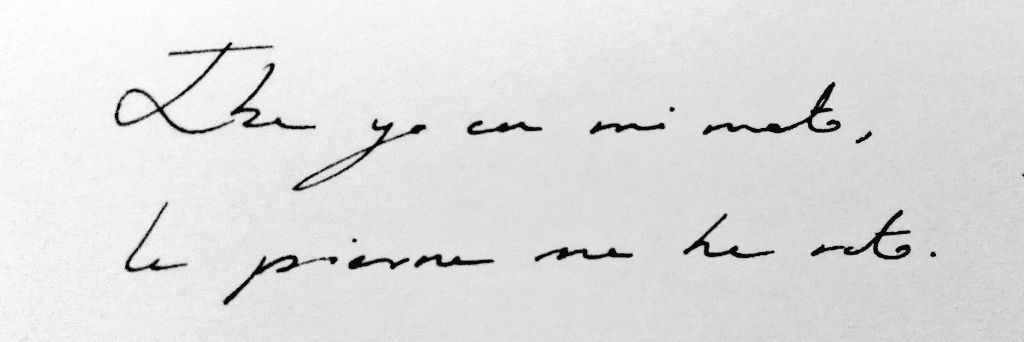 Iba yo con mi moto,
la pierna me he roto.